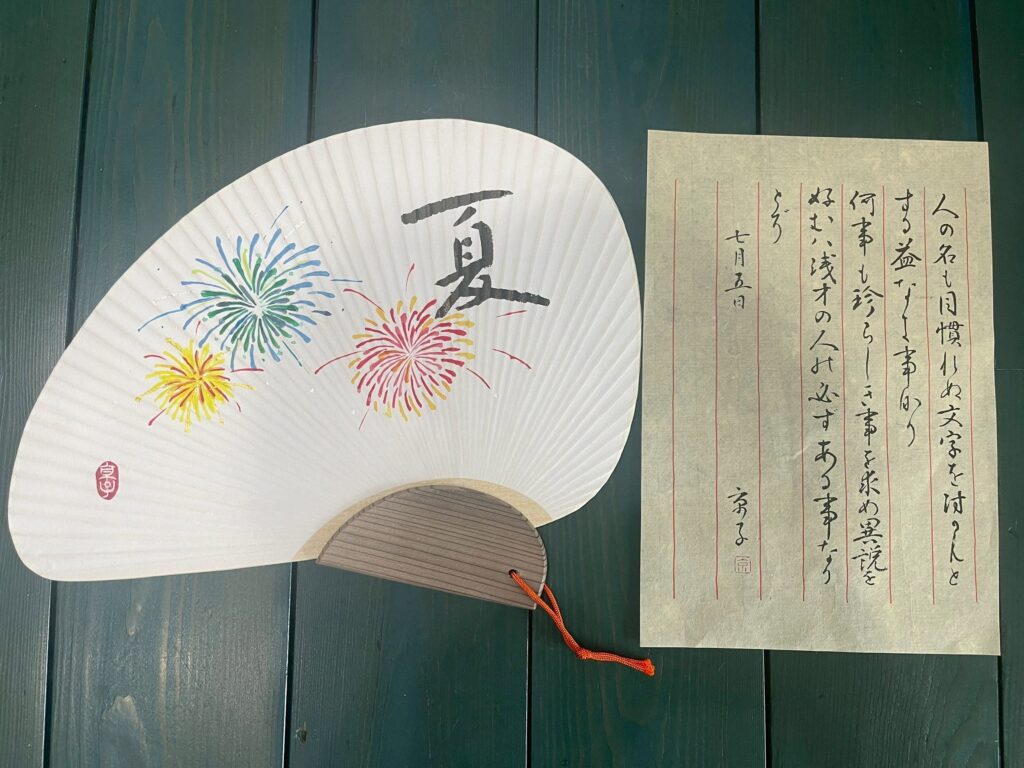 夏
京子
人の名も目慣れぬ文字を付かんと
する益なき事なり
何事も珍らしき事を求め異説を
好むハ浅才の人の必ずある事なり
とぞ
七月五日
京子